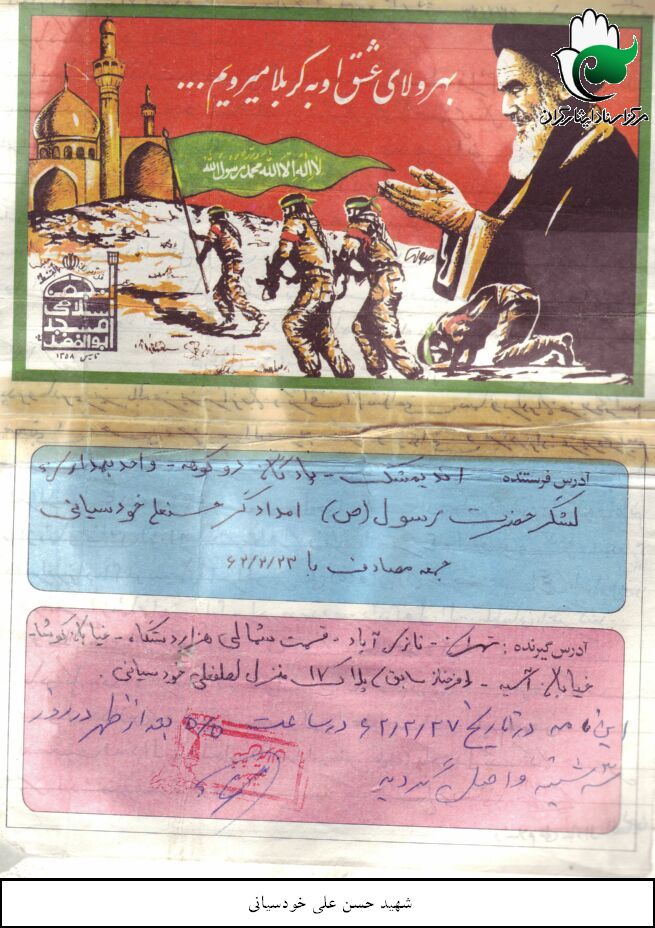 مرکز اسناد ایثارگران
بهر ولای عشق او به کربلا میرویم ...
لا اله الا الله محمد رسول الله
مسجد
ابوالفضل
تاسیس ۱۳۵۸
آدرس فرستنده اندیمشک - پادگان دو کوهه - واحد بهداری
لشگر حضرت رسول (ص) امدادگر حسنعلی خودسیانی
جمعه مصادف با ۶۲/۲/۲۳
آدرس گیرنده : تهران - نازی آباد - قسمت شمالی هزار دستگاه - خیابان
خیابان آسیه - سابق) پلاک ۱۷ منزل لطفعلی خودسیانی .
این نامه در تاریخ ۶۲/۲/۲۷ در ساعت ۵/۵ بعد از ظهر در روز
سه شنبه واصل گردید
شهید حسن علی خودسیانی